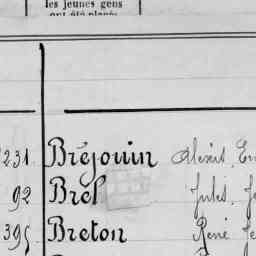 les jeunes gens
ont été placés
231 Bréjouin Alexis
92 Brel Jules
395 Breton René